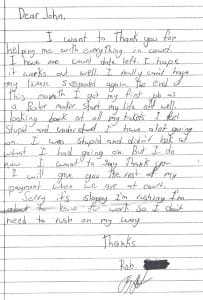 Dear John,
I want to Thank you for
helping me with everything in court.
I have one court date left. I hope
it works out well. I really want hope
my license suspended again the end of
This month I got my first job as
a Roller maker start my life off well.
looking back at all my tickets I feel
Stupid and understand I have alot going
on. I was Stupid and didn't look at
what I had going on. but I do
now I want to Say Thank you
I will give you the rest of my
payment when we are at court.
Sorry it's sloppy I'm rushing I'm
about to leave for work So I dont
need to rush on my way.
Thanks
Rob